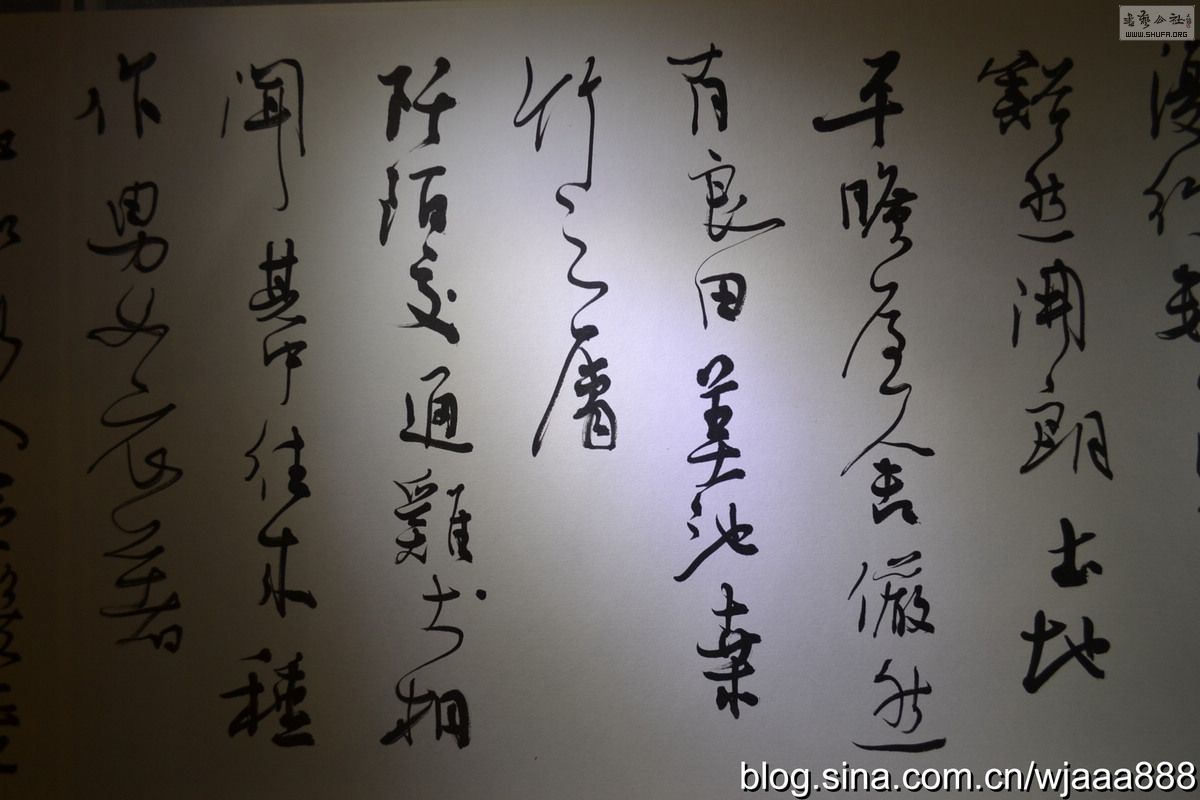 復行數
豁然開朗土地
平曠屋舍儼然
有良田美池桑
竹之屬
阡陌交通雞犬相
聞其中往來種
作男女衣著
書藝公社
WWW.SHUFA.ORG
blog.sina.com.cn/wjaaa888